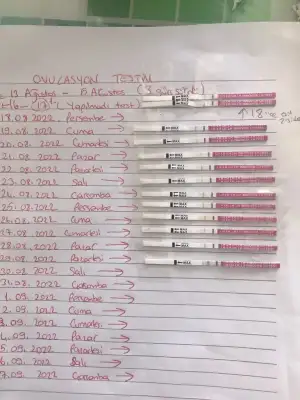 OVULASYON TESTİ
13 Ağustos - 15 Ağustos (3 gün
Yapılmadı test)
18.08.2022 Perşembe →
19.08.2022 Cuma →
20.08.2022 Cumartesi →
21.08.2022 Pazar →
22.08.2022 Pazartesi →
23.08.2022 Salı →
24.08.2022 Çarşamba →
25.08.2022 Perşembe →
26.08.2022 Cuma →
27.08.2022 Cumartesi →
28.08.2022 Pazar →
29.08.2022 Pazartesi →
30.08.2022 Salı →
31.08.2022 Çarşamba →
1.09.2022 Perşembe →
2.09.2022 Cuma →
3.09.2022 Cumartesi →
4.09.2022 Pazar →
5.09.2022 Pazartesi →
6.09.2022 Salı →
7.09.2022 Çarşamba →